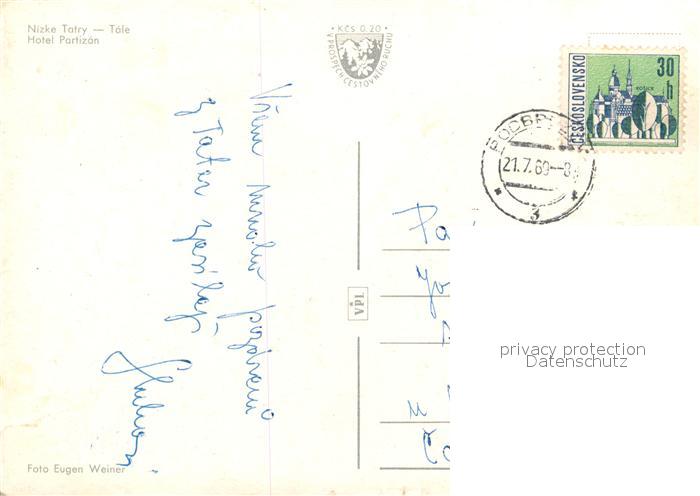 Nízke Tatry — Tále
Hotel Partizán
Kčs 0.20
V PROSPECH CESTOVNÉHO RUCHU
ČESKOSLOVENSKO
30 h
KOŠICE
21.7.69
3
Všem mnoho pozdravů
z Tater zasílají
VPL
privacy protection
Datenschutz
Foto Eugen Weiner